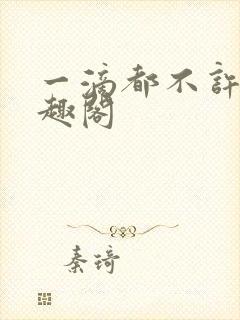 一滴都不許
趣閣
秦琦